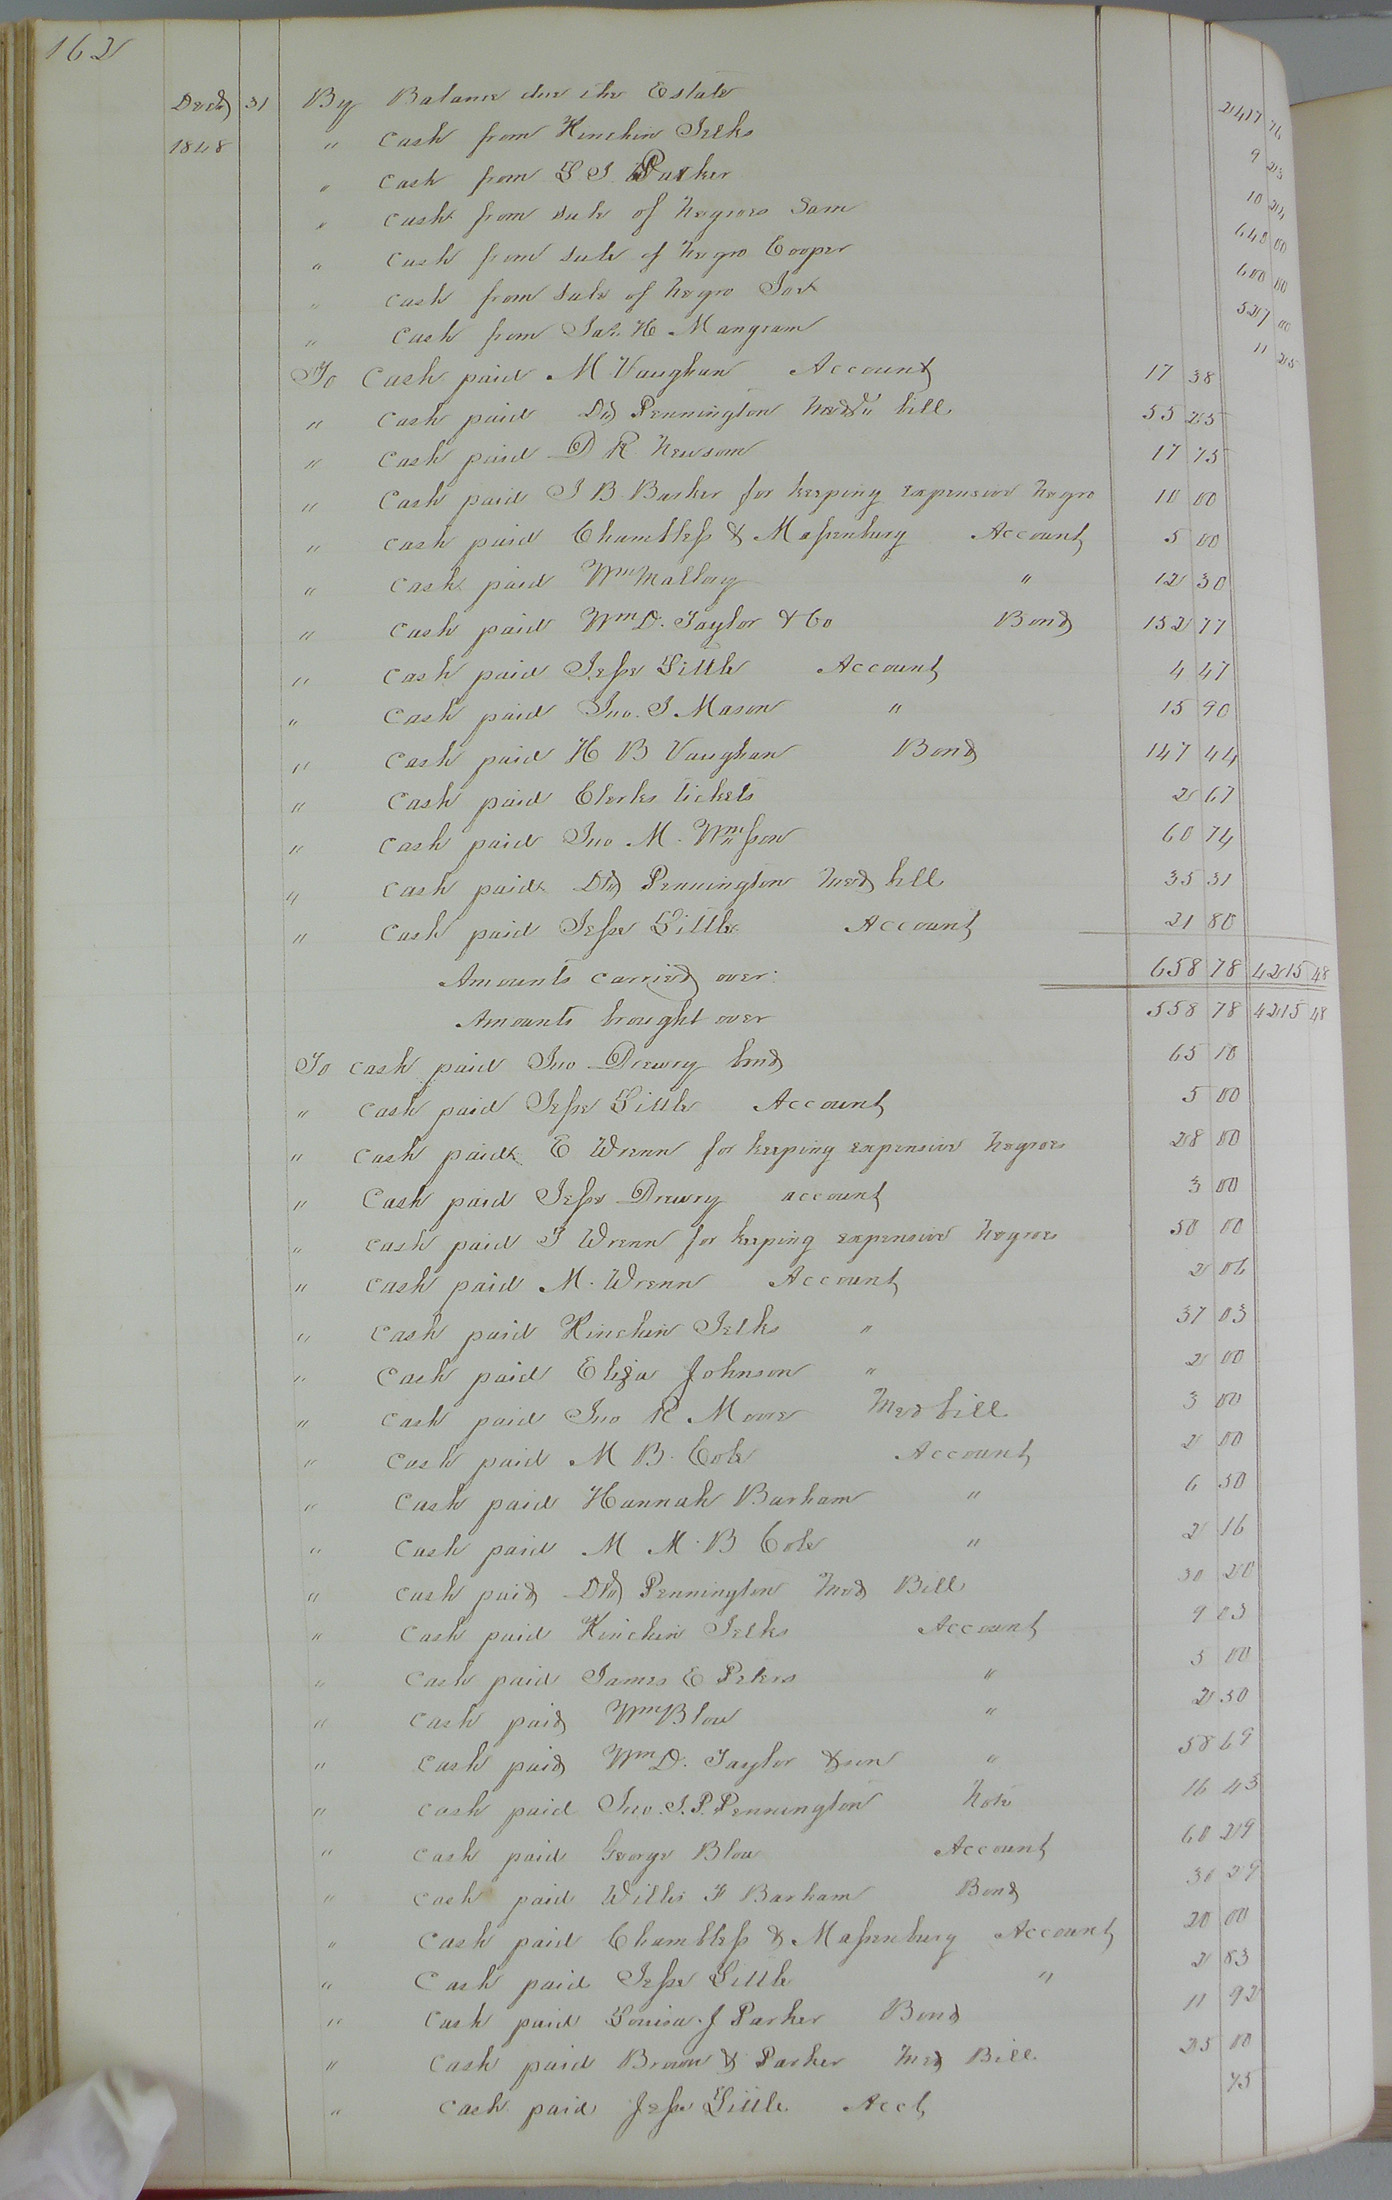 162
Decb 31 By Balance due the Estate 2417 76
1848 " Cash from Hinchin Jelks 9 23
" Cash from L S Parker 10 24
" Cash from Sale of Negroes Sam 640 00
" Cash from Sale of Negro Cooper 600 00
" Cash from Sale of Negro Jack 527 00
" Cash from Jas. H Mangram 11 25
To Cash paid M. Vaughan Account 17 38
" Cash paid Dr Pennington Med. bill 55 25
" Cash paid D R Newsom 17 75
" Cash paid J B Barker for keeping expensive Negro 10 00
" Cash paid Chambless & Massenburg Account 5 00
" Cash paid Wm Mallory " 12 30
" Cash paid Wm D. Taylor & Co Bond 152 77
" Cash paid Jesse Little Account 4 47
" Cash paid Jno. J Mason " 15 90
" Cash paid H B Vaughan Bond 147 44
" Cash paid Clerks tickets 2 67
" Cash paid Jno M. Wmson 60 74
" Cash paid Dr Pennington Med bill 35 31
" Cash paid Jesse Little Account 21 80
Amounts carried over 658 78 4215 48
Amounts brought over 558 78 4215 48
To Cash paid Jno Drewry bond 65 10
" Cash paid Jesse Little Account 5 00
" Cash paid E Wrenn for keeping expensive Negroes 28 00
" Cash paid Jesse Drewry account 3 00
" Cash paid J Wrenn for keeping expensive Negroes 50 00
" Cash paid M. Wrenn Account 2 06
" Cash paid Hinchin Jelks " 37 03
" Cash paid Eliza Johnson " 2 00
" Cash paid Jno R Moore Med bill 3 00
" Cash paid M B. Cole Account 2 00
" Cash paid Hannah Barham " 6 50
" Cash paid M M. B Cole " 2 16
" Cash paid Dr Pennington Med Bill 30 20
" Cash paid Hinchin Jelks Account 9 03
" Cash paid James E Peters " 5 00
" Cash paid Wm Blow " 2 50
" Cash paid Wm D. Taylor & son " 58 69
" Cash paid Jno. J. P. Pennington Note 16 43
" Cash paid George Blow Account 60 29
" Cash paid Willis F Barham Bond 30 29
" Cash paid Chambless & Massenburg Account 20 00
" Cash paid Jesse Little " 2 83
" Cash paid Louisa J Parker Bond 11 92
" Cash paid Brown & Parker Med Bill 25 00
" Cash paid Jesse Little Acct 75